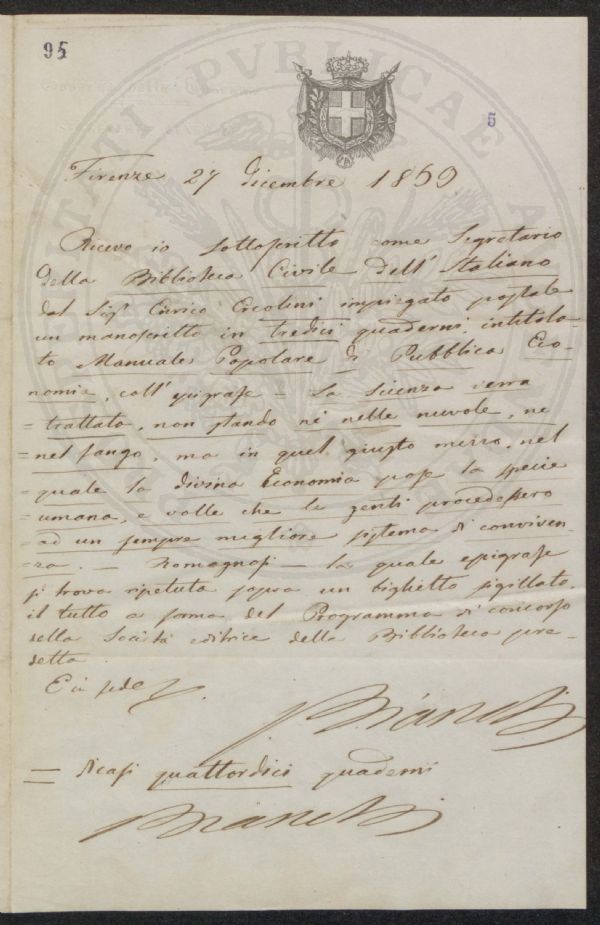 95
5
Firenze 27 Dicembre 1859
Ricevo io sottoscritto come Segretario
della Biblioteca Civile dell' Italiano
dal Sigr Enrico Ercolini impiegato postale
un manoscritto in tredici quaderni intitola-
to Manuale Popolare di Pubblica Eco-
nomia, coll' epigrafe = La Scienza verrà
= trattata, non stando nè nelle nuvole, nè
= nel fango, ma in quel giusto mezzo, nel
= quale la divina Economia pose la specie
= umana, e volle che le genti procedessero
= ad un sempre migliore sistema di conviven-
= za. — Romagnosi — la quale epigrafe
si trova ripetuta sopra un biglietto sigillato.
il tutto a forma del Programma di concorso
della Società editrice della Biblioteca pre-
detta.
E in fede
Bianchi
= Dicasi quattordici quaderni
Bianchi